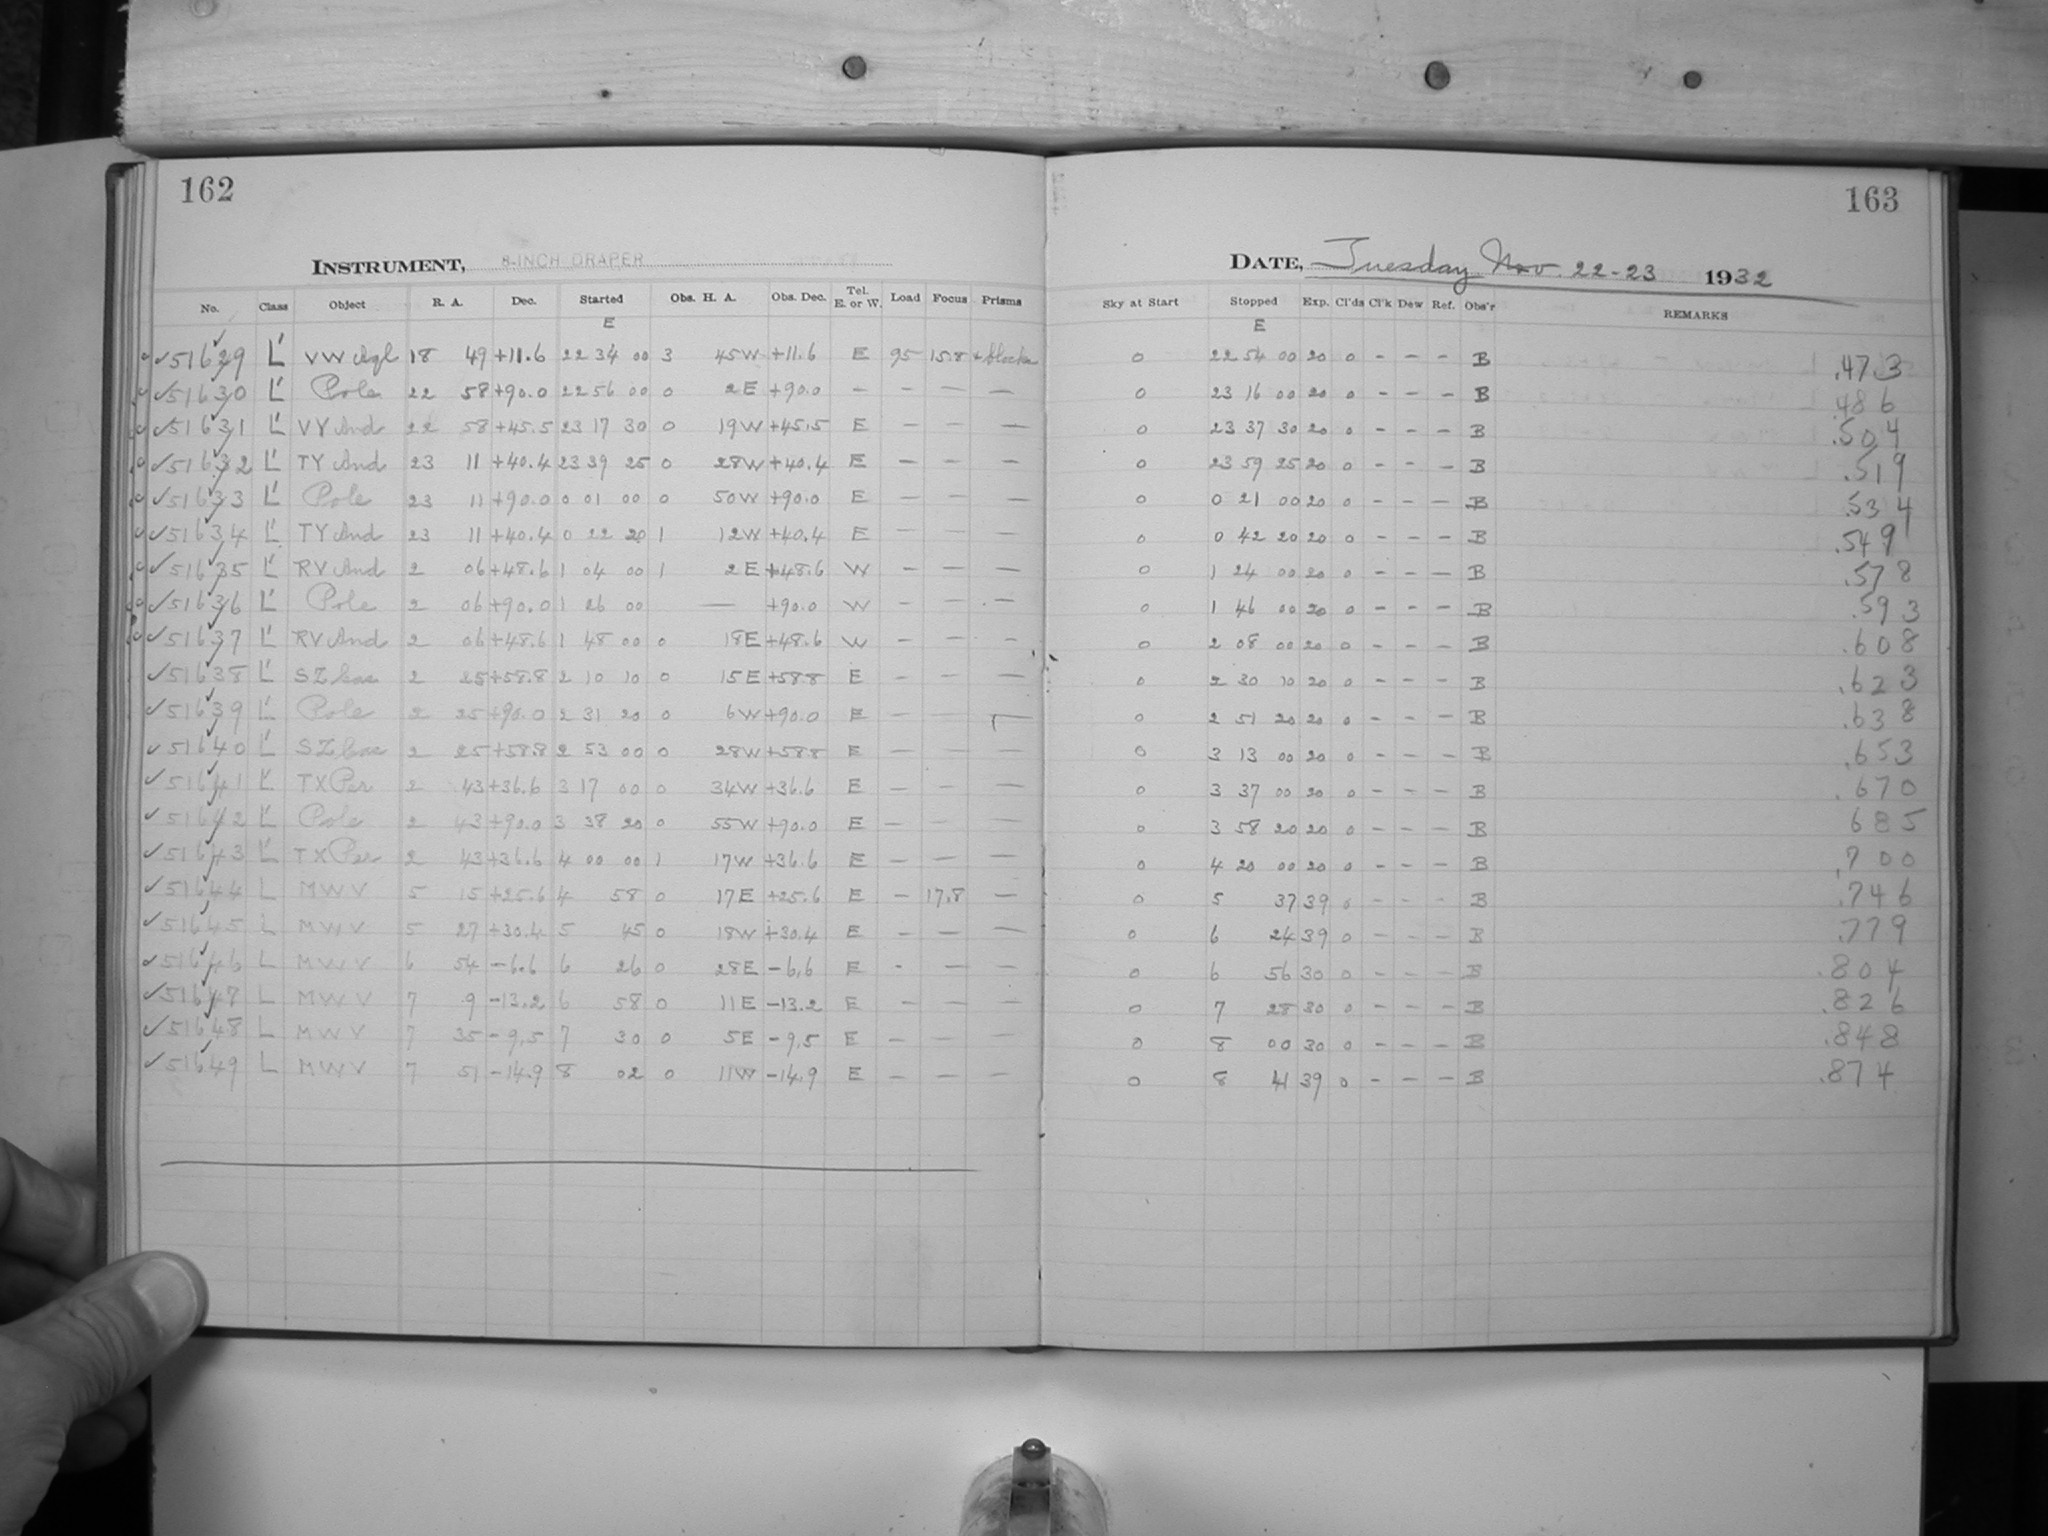 162
163
INSTRUMENT, 8-INCH DRAPER
DATE, Tuesday Nov. 22-23 1932
No. Class Object R. A. Dec. Started Obs. H. A. Obs. Dec. Tel. E. or W. Load Focus Prisms Sky at Start Stopped Exp. Cl'ds Cl'k Dew Ref. Obs'r REMARKS
E E
✓51629 L' VW Aql 18 49 +11.6 22 34 00 3 45W +11.6 E 95 15.8 0 22 54 00 20 0 - - - B .473
✓51630 L' Pole 22 58 +90.0 22 56 00 0 2E +90.0 - - - - 0 23 16 00 20 0 - - - B .486
✓51631 L' VY And 22 58 +45.5 23 17 30 0 19W +45.5 E - - - 0 23 37 30 20 0 - - - B .504
✓51632 L' TY And 23 11 +40.4 23 39 25 0 28W +40.4 E - - - 0 23 59 25 20 0 - - - B .519
✓51633 L' Pole 23 11 +90.0 0 01 00 0 50W +90.0 E - - - 0 0 21 00 20 0 - - - B .534
✓51634 L' TY And 23 11 +40.4 0 22 20 1 12W +40.4 E - - - 0 0 42 20 20 0 - - - B .549
✓51635 L' RV And 2 06 +48.6 1 04 00 1 2E +48.6 W - - - 0 1 24 00 20 0 - - - B .578
✓51636 L' Pole 2 06 +90.0 1 26 00 - +90.0 W - - - 0 1 46 00 20 0 - - - B .593
✓51637 L' RV And 2 06 +48.6 1 48 00 0 18E +48.6 W - - - 0 2 08 00 20 0 - - - B .608
✓51638 L' SZ Cas 2 25 +58.8 2 10 10 0 15E +58.8 E - - - 0 2 30 10 20 0 - - - B .623
✓51639 L' Pole 2 25 +90.0 2 31 20 0 6W +90.0 E - - - 0 2 51 20 20 0 - - - B .638
✓51640 L' SZ Cas 2 25 +58.8 2 53 00 0 28W +58.8 E - - - 0 3 13 00 20 0 - - - B .653
✓51641 L' TX Per 2 43 +36.6 3 17 00 0 34W +36.6 E - - - 0 3 37 00 20 0 - - - B .670
✓51642 L' Pole 2 43 +90.0 3 38 20 0 55W +90.0 E - - - 0 3 58 20 20 0 - - - B 685
✓51643 L' TX Per 2 43 +36.6 4 00 00 1 17W +36.6 E - - - 0 4 20 00 20 0 - - - B .700
✓51644 L MWV 5 15 +25.6 4 58 0 17E +25.6 E - 17.8 - 0 5 37 39 0 - - - B .746
✓51645 L MWV 5 27 +30.4 5 45 0 18W +30.4 E - - - 0 6 24 39 0 - - - B .779
✓51646 L MWV 6 54 -6.6 6 26 0 28E -6.6 E - - - 0 6 56 30 0 - - - B .804
✓51647 L MWV 7 9 -13.2 6 58 0 11E -13.2 E - - - 0 7 28 30 0 - - - B .826
✓51648 L MWV 7 35 -9.5 7 30 0 5E -9.5 E - - - 0 8 00 30 0 - - - B .848
✓51649 L MWV 7 51 -14.9 8 02 0 11W -14.9 E - - - 0 8 41 39 0 - - - B .874